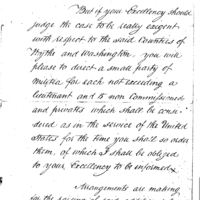 But if your Excellency should
judge the case to be really exigent
with respect to the said Counties of
Wythe and Washington, you will
please to direct a small party of
militia for each not exceeding a
lieutenant and to non Commissioned
and privates which shall be consi-
dered as in the service of the United
States for the time you shall so order
them, of which I shall be obliged
to your Excellency to be informed.
Arrangements are making